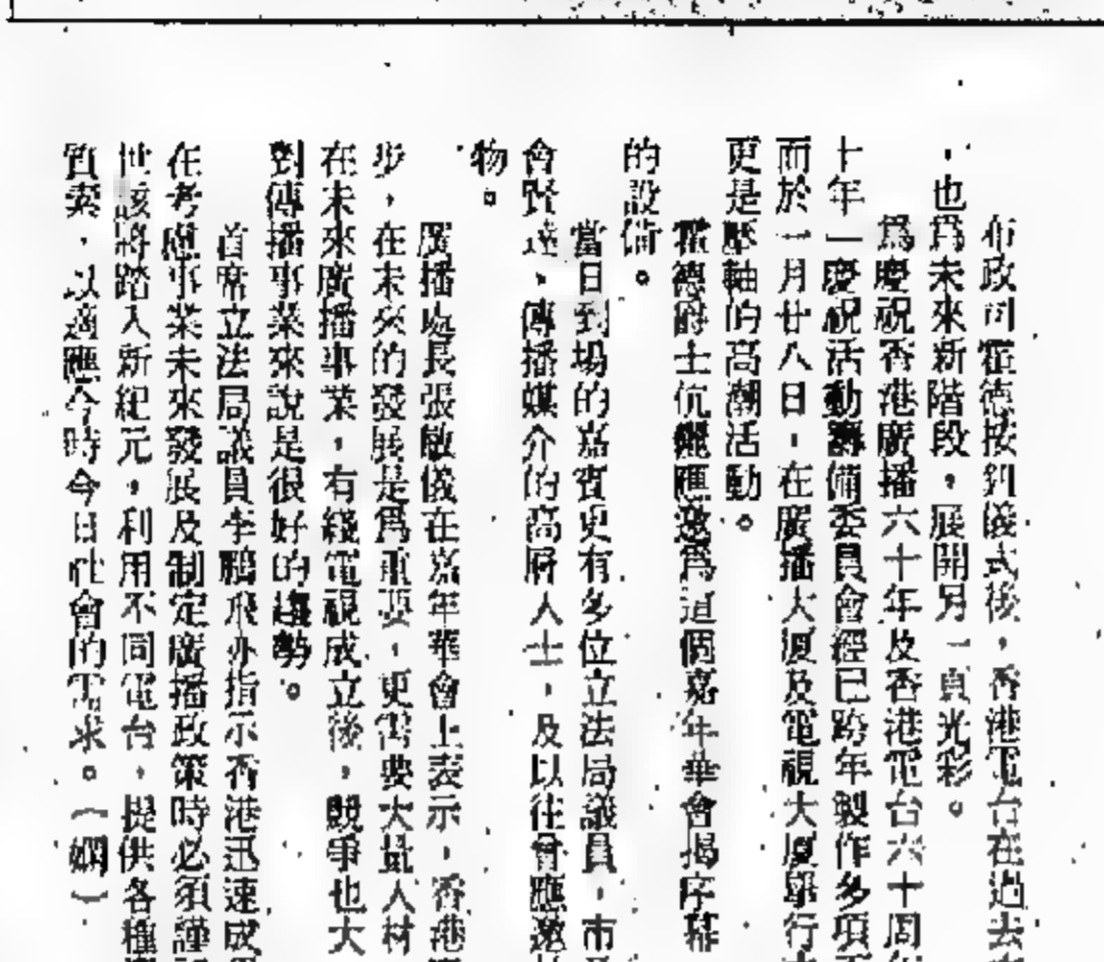 布政司霍德按鈕儀式後，香港電台在過去
，也爲未來新階段，展開另一頁光彩。
爲慶祝香港廣播六十年及香港電台六十周年
十年」慶祝活動籌備委員會經已跨年製作多項
而於一月廿八日，在廣播大廈及電視大廈舉行
更是壓軸的高潮活動。
霍德爵士伉儷應邀爲這個嘉年華會揭序幕
的設備。
當日到場的嘉賓更有多位立法局議員，市
會賢達、傳播媒介的高層人士，及以往曾應邀
物。
廣播處長張敏儀在嘉年華會上表示，香港
步，在未來的發展是爲重要，更需要大量人材
在未來廣播事業，有綫電視成立後，競爭也大
對傳播事業來說是很好的趨勢。
首席立法局議員李鵬飛亦指示香港迅速成
在考慮事業未來發展及制定廣播政策時必須謹
世該將踏入新紀元，利用不同電台，提供各種
質素，以適應今時今日社會的需求。（嫻）